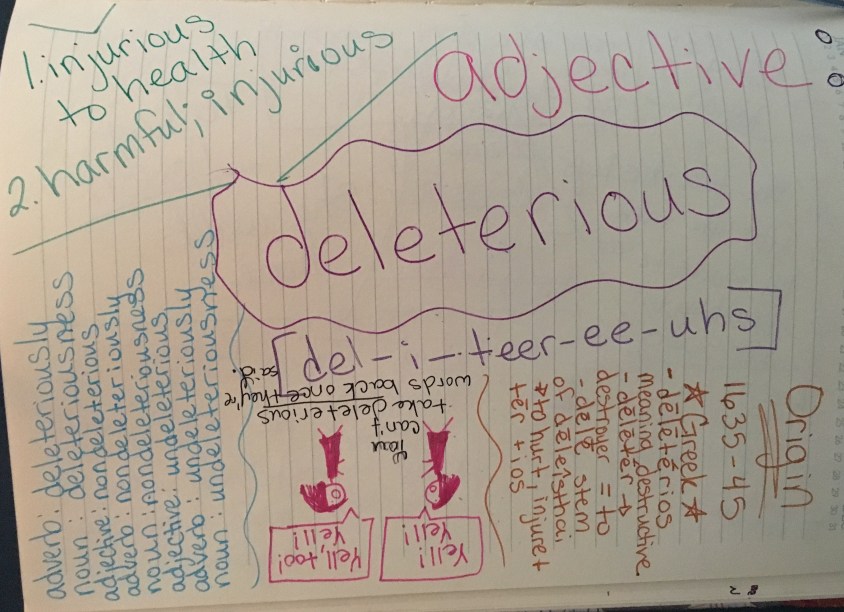 adjective
1. injurious
to health
2. harmful; injurious
deleterious
[del-i-teer-ee-uhs]
Origin
1635-45
★ Greek ★
- dēlētērios
meaning destructive
- dēlētēr →
destroyer = to
- dēlē stem
of dēleisthai
*to hurt, injure +
tēr + ios
Yell!
Yell!
Yell, too!
Yell!
You
can't
take deleterious
words back once they're
said.
adverb: deleteriously
noun: deleteriousness
adjective: nondeleterious
adverb: nondeleteriously
noun: nondeleteriousness
adjective: undeleterious
adverb: undeleteriously
noun: undeleteriousness